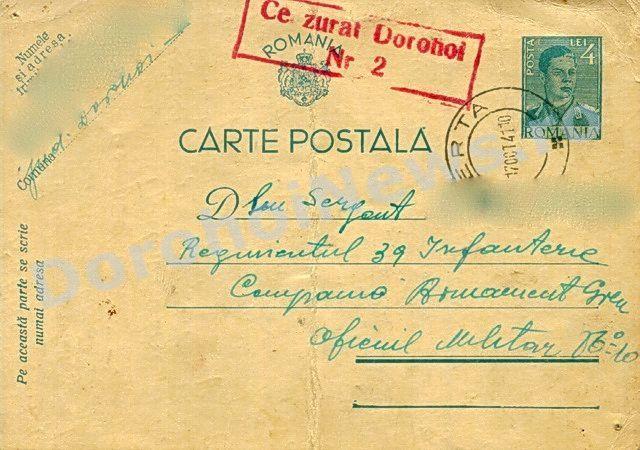 Ce zurat Dorohoi
Nr 2
ROMANIA
POSTA LEI 4
ROMANIA
CARTE POSTALĂ
ERTA
Numele
și adresa
Comuna
Jud.
Pe această parte se scrie
numai adresa
Dlui Sergent
Regimentul 39 Infanterie
Compania Armament Greu
Oficiul Militar No 10
DorohoiNews